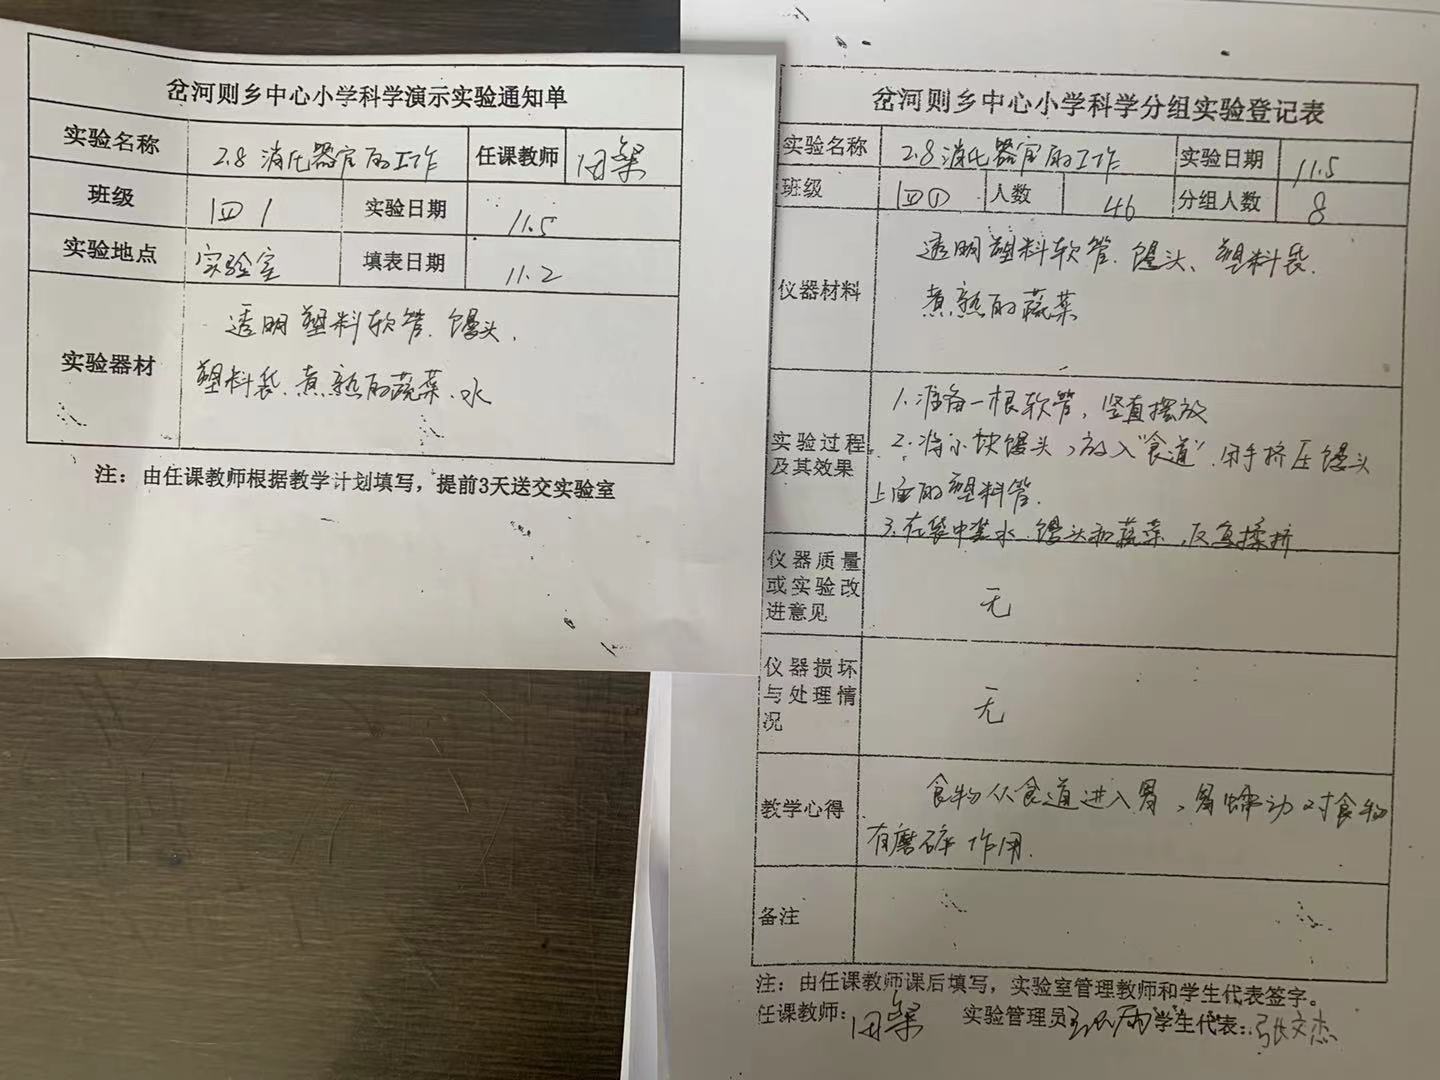 岔河则乡中心小学科学演示实验通知单
实验名称 2.8 消化器官的工作 任课教师 田梁
班级 四1 实验日期 11.5
实验地点 实验室 填表日期 11.2
实验器材 透明塑料软管、馒头、
塑料袋、煮熟的蔬菜、水
注：由任课教师根据教学计划填写，提前3天送交实验室
岔河则乡中心小学科学分组实验登记表
实验名称 2.8消化器官的工作 实验日期 11.5
班级 四① 人数 46 分组人数 8
仪器材料 透明塑料软管、馒头、塑料袋、
煮熟的蔬菜
实验过程及其效果 1.准备一根软管，竖直摆放
2.将小块馒头，放入“食道”用手挤压馒头
上面的塑料管.
3.在袋中装水、馒头和蔬菜，反复揉挤
仪器质量或实验改进意见 无
仪器损坏与处理情况 无
教学心得 食物从食道进入胃，胃蠕动对食物
有磨碎作用.
备注
注：由任课教师课后填写，实验室管理教师和学生代表签字。
任课教师：田梁 实验管理员 学生代表：张文杰